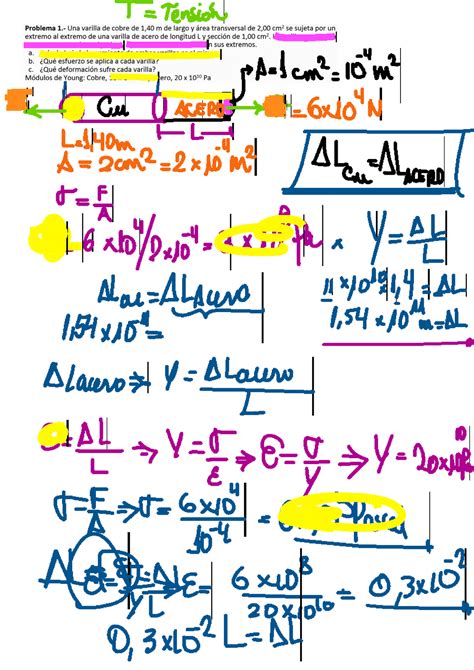 T = Tensión
Problema 1.- Una varilla de cobre de 1,40 m de largo y área transversal de 2,00 cm² se sujeta por un
extremo al extremo de una varilla de acero de longitud L y sección de 1,00 cm².
n sus extremos.
a.
b. ¿Qué esfuerzo se aplica a cada varilla?
c. ¿Qué deformación sufre cada varilla?
Módulos de Young: Cobre, ero, 20 x 10¹⁰ Pa
A = 1 cm² = 10⁻⁴ m²
Cu ACERO = 6x10⁴ N
L
L = 1,40m
A = 2cm² = 2 x 10⁻⁴ m²
ΔL Cu = ΔL ACERO
σ = F/A
6 x10⁴/2x10⁻⁴ =
Y = ΔL/L
11x10¹⁰ · 1,4 = ΔL
1,54 x 10¹¹ m = ΔL
ΔL cu = ΔL Acero
1,54x10¹¹ =
ΔL acero ⇒ Y = ΔL acero / L
= ΔL/L ⇒ Y = σ/ε ⇒ ε = σ/Y ⇒ Y = 20x10¹⁰
σ = F/A ⇒ σ = 6x10⁴ / 10⁻⁴ =
= ΔL ε = 6x10⁸ / 20x10¹⁰ = 0,3x10⁻²
0,3x10⁻² L = ΔL